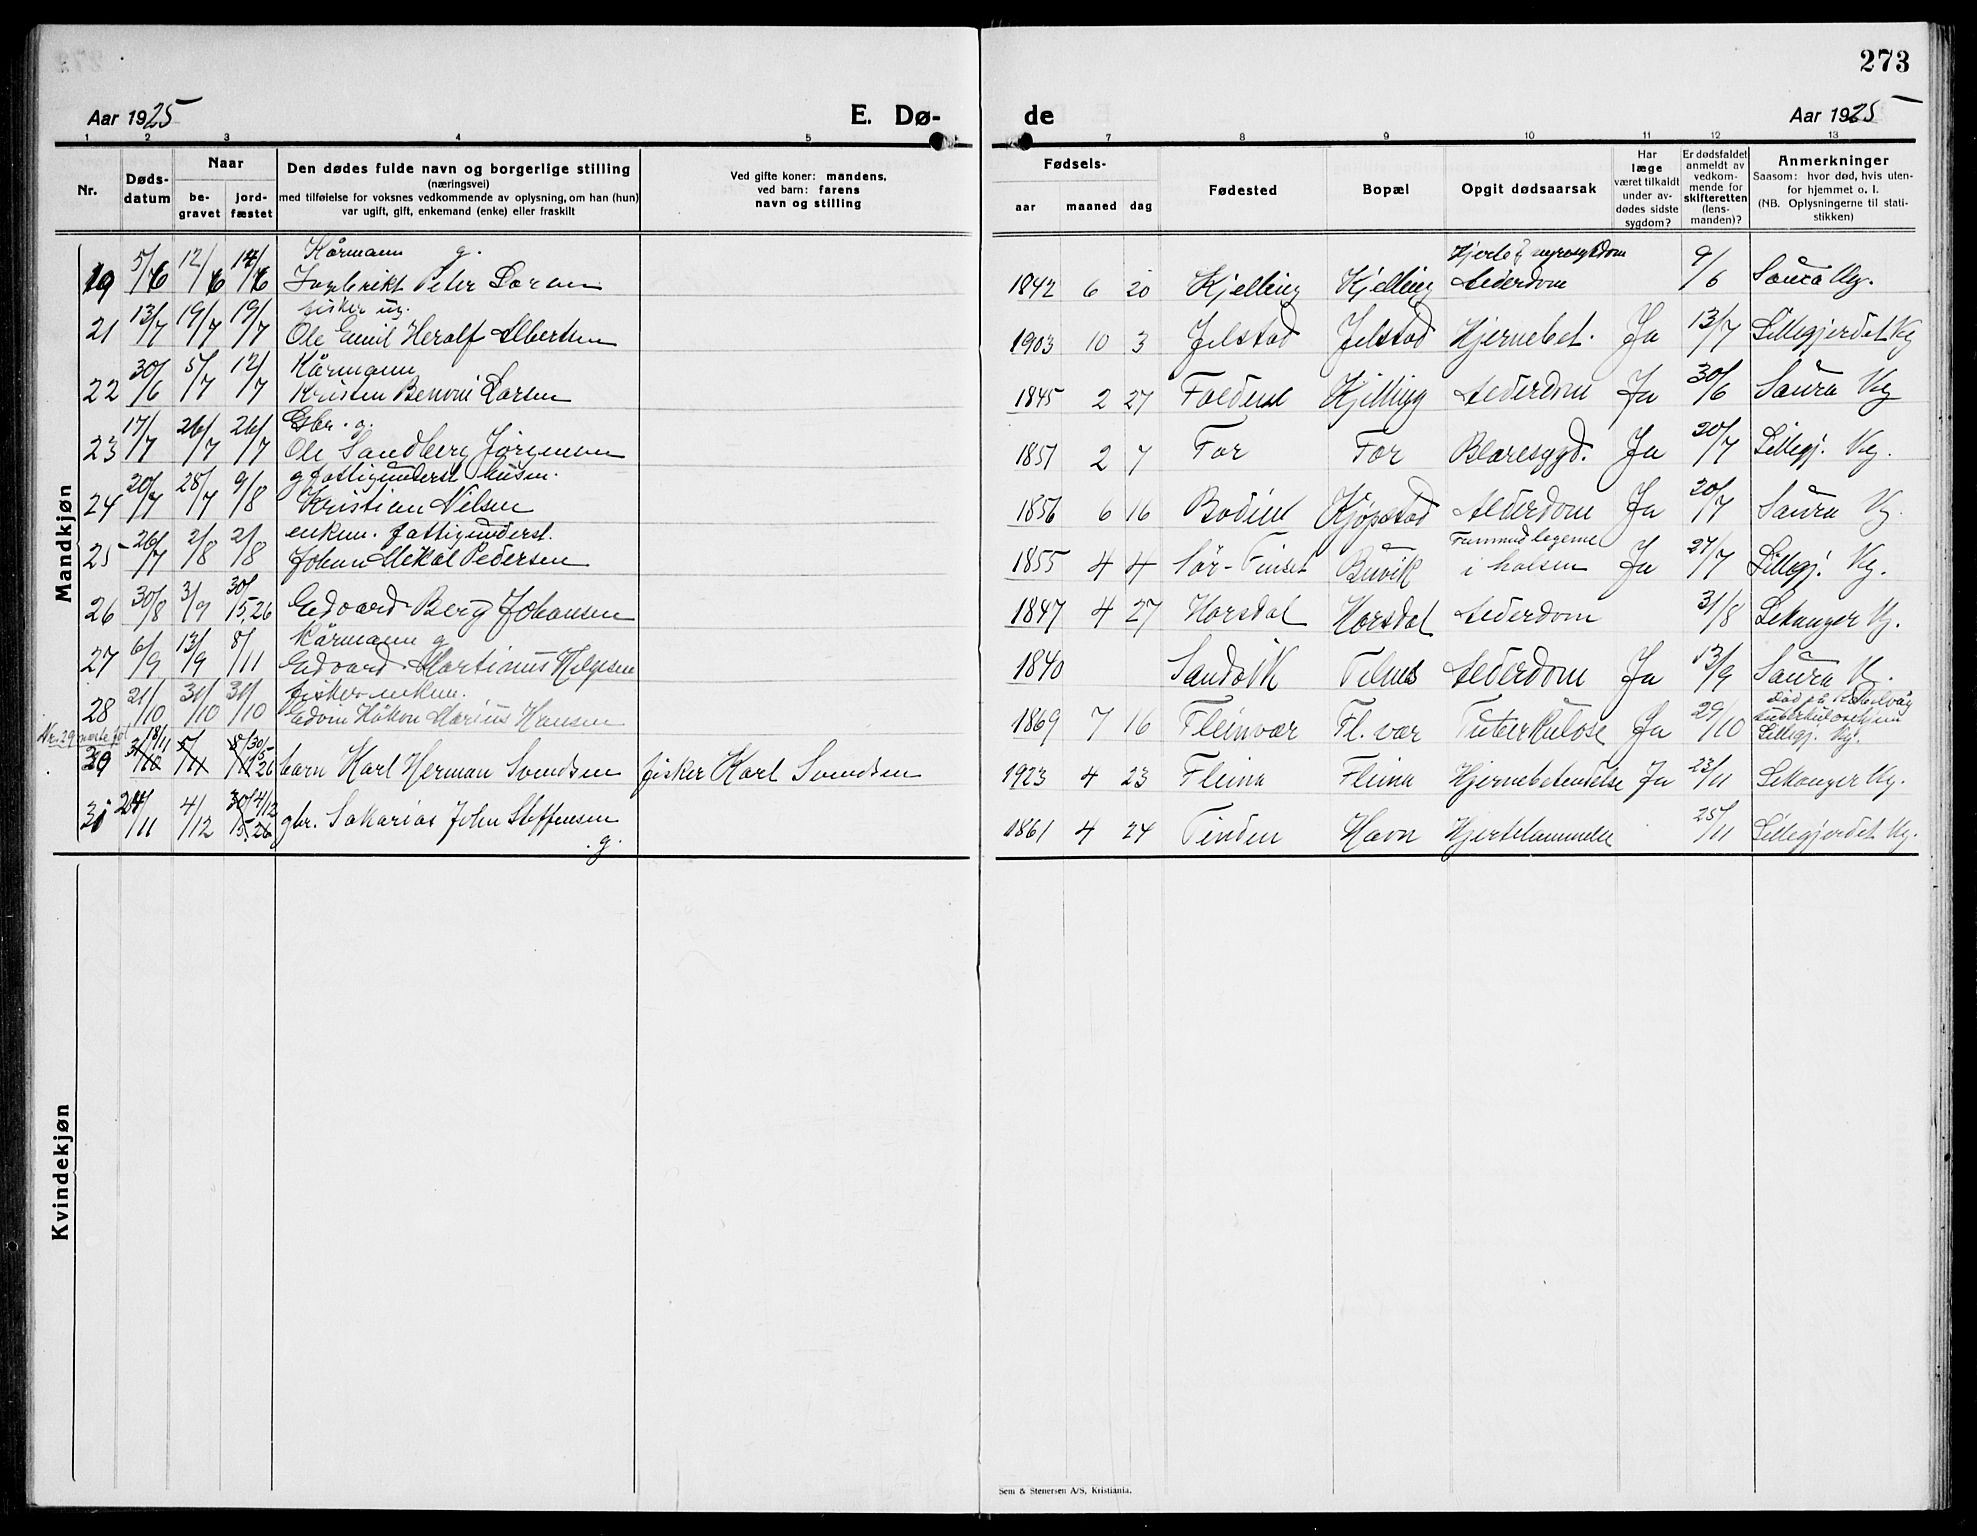 273
Aar 1925
E. Dø-
de
Aar 1925
1 2 3 4 5 7 8 9 10 11 12 13
Nr.
Døds-
datum
Naar
be-
gravet
jord-
fæstet
Den dødes fulde navn og borgerlige stilling
(næringsvei)
med tilføielse for voksnes vedkommende av oplysning, om han (hun)
var ugift, gift, enkemand (enke) eller fraskilt
Ved gifte koner: mandens,
ved barn: farens
navn og stilling
Fødsels-
aar maaned dag
Fødested
Bopæl
Opgit dødsaarsak
Har
læge
været tilkaldt
under av-
dødes sidste
sygdom?
Er dødsfaldet
anmeldt av
vedkom-
mende for
skifteretten
(lens-
manden)?
Anmerkninger
Saasom: hvor død, hvis uten-
for hjemmet o. l.
(NB. Oplysningerne til stati-
stikken)
Mandkjøn
Kårmann g.
19 5/6 12/6 14/6 Ingebrikt Peter Larsen 1842 6 20 Kjelling Kjelling Alderdom 9/6 Saura Kg.
fisker ug.
21 13/7 19/7 19/7 Ole Emil Heralf Albertsen 1903 10 3 Jelstad Jelstad Hjernebet. Ja 13/7 Lillegjerdet Kg
Kårmann
22 30/6 5/7 12/7 Kristen Benoni Larsen 1845 2 27 Foldene Kjelling Alderdom Ja 30/6 Saura Kg
Gbr. g.
23 17/7 26/7 26/7 Ole Sandberg Jørgensen 1851 2 7 For For Blæresygd. Ja 20/7 Lillegj. Kg.
g. fattigunderst. husm.
24 20/7 28/7 9/8 Kristian Nilsen 1856 6 16 Bodin Kjøpstad Alderdom Ja 20/7 Saura Kg.
enkem. fattigunderst.
25 26/7 2/8 2/8 Johan Mikal Pedersen 1855 4 4 Sør-Finset Buvik i halsen Ja 27/7 Lillegj. Kg.
26 30/8 3/9 30/5.26 Edvard Berg Johansen 1847 4 27 Horsdal Horsdal Alderdom 31/8 Lekanger Kg.
Kårmann g
27 6/9 13/9 8/11 Edvard Martinus Helgesen 1840 Sandvik Telnes Alderdom Ja 13/9 Saura K.
fisker enkem.
28 21/10 31/10 31/10 Edvin Håkon Marius Hansen 1869 7 16 Fleinvær Fl. vær Tuberkulose Ja 29/10 Lillegj. Kg.
29 18/11 30/5 26 barn Karl Herman Svendsen fisker Karl Svendsen 1923 4 23 Fleina Fleina Hjernebetendelse Ja 23/11 Lekanger Kg.
31 24/11 4/12 4/12 gbr. Sakarias John Steffensen 1861 4 24 Tinden Havn Hjertelammelse 25/11 Lillegjerdet Kg.
g.
Kvindekjøn
Sem & Stenersen A/S, Kristiania.